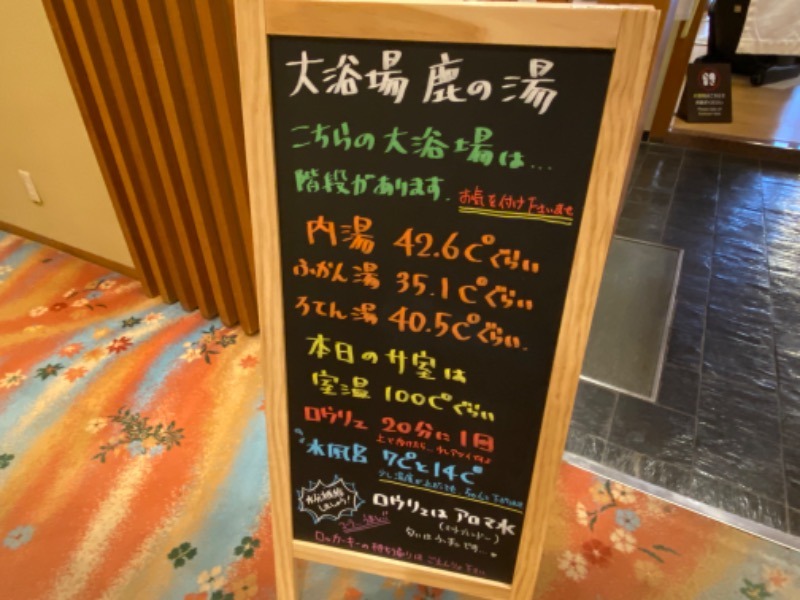 大浴場 鹿の湯
こちらの大浴場は...
階段があります。
お気を付け下さいませ
内湯 42.6℃ぐらい
ふかん湯 35.1℃ぐらい
ろてん湯 40.5℃ぐらい.
本日のサ室は
室温 100℃ぐらい
ロウリュ 20分に1回
水風呂 7℃と14℃
水分補給しましょう!
ロウリュは アロマ水